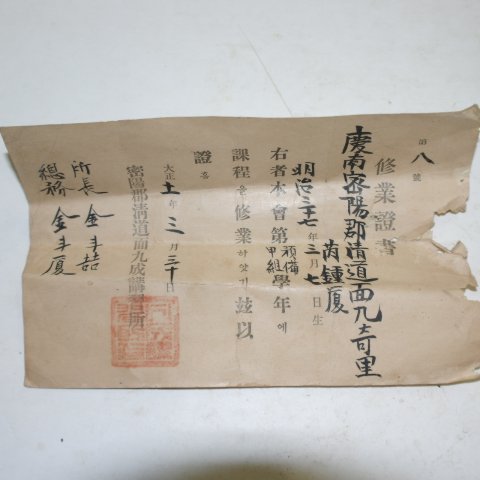 第八號
修業證書
慶南密陽郡淸道面九奇里
芮鍾厦
明治三十七年三月七日生
右者本會第預備甲組學年에
課程을修業하얏기玆以
證홈
大正十一年三月三十日
密陽郡淸道面九成講習所
所長 金斗喆
總務 金斗厦